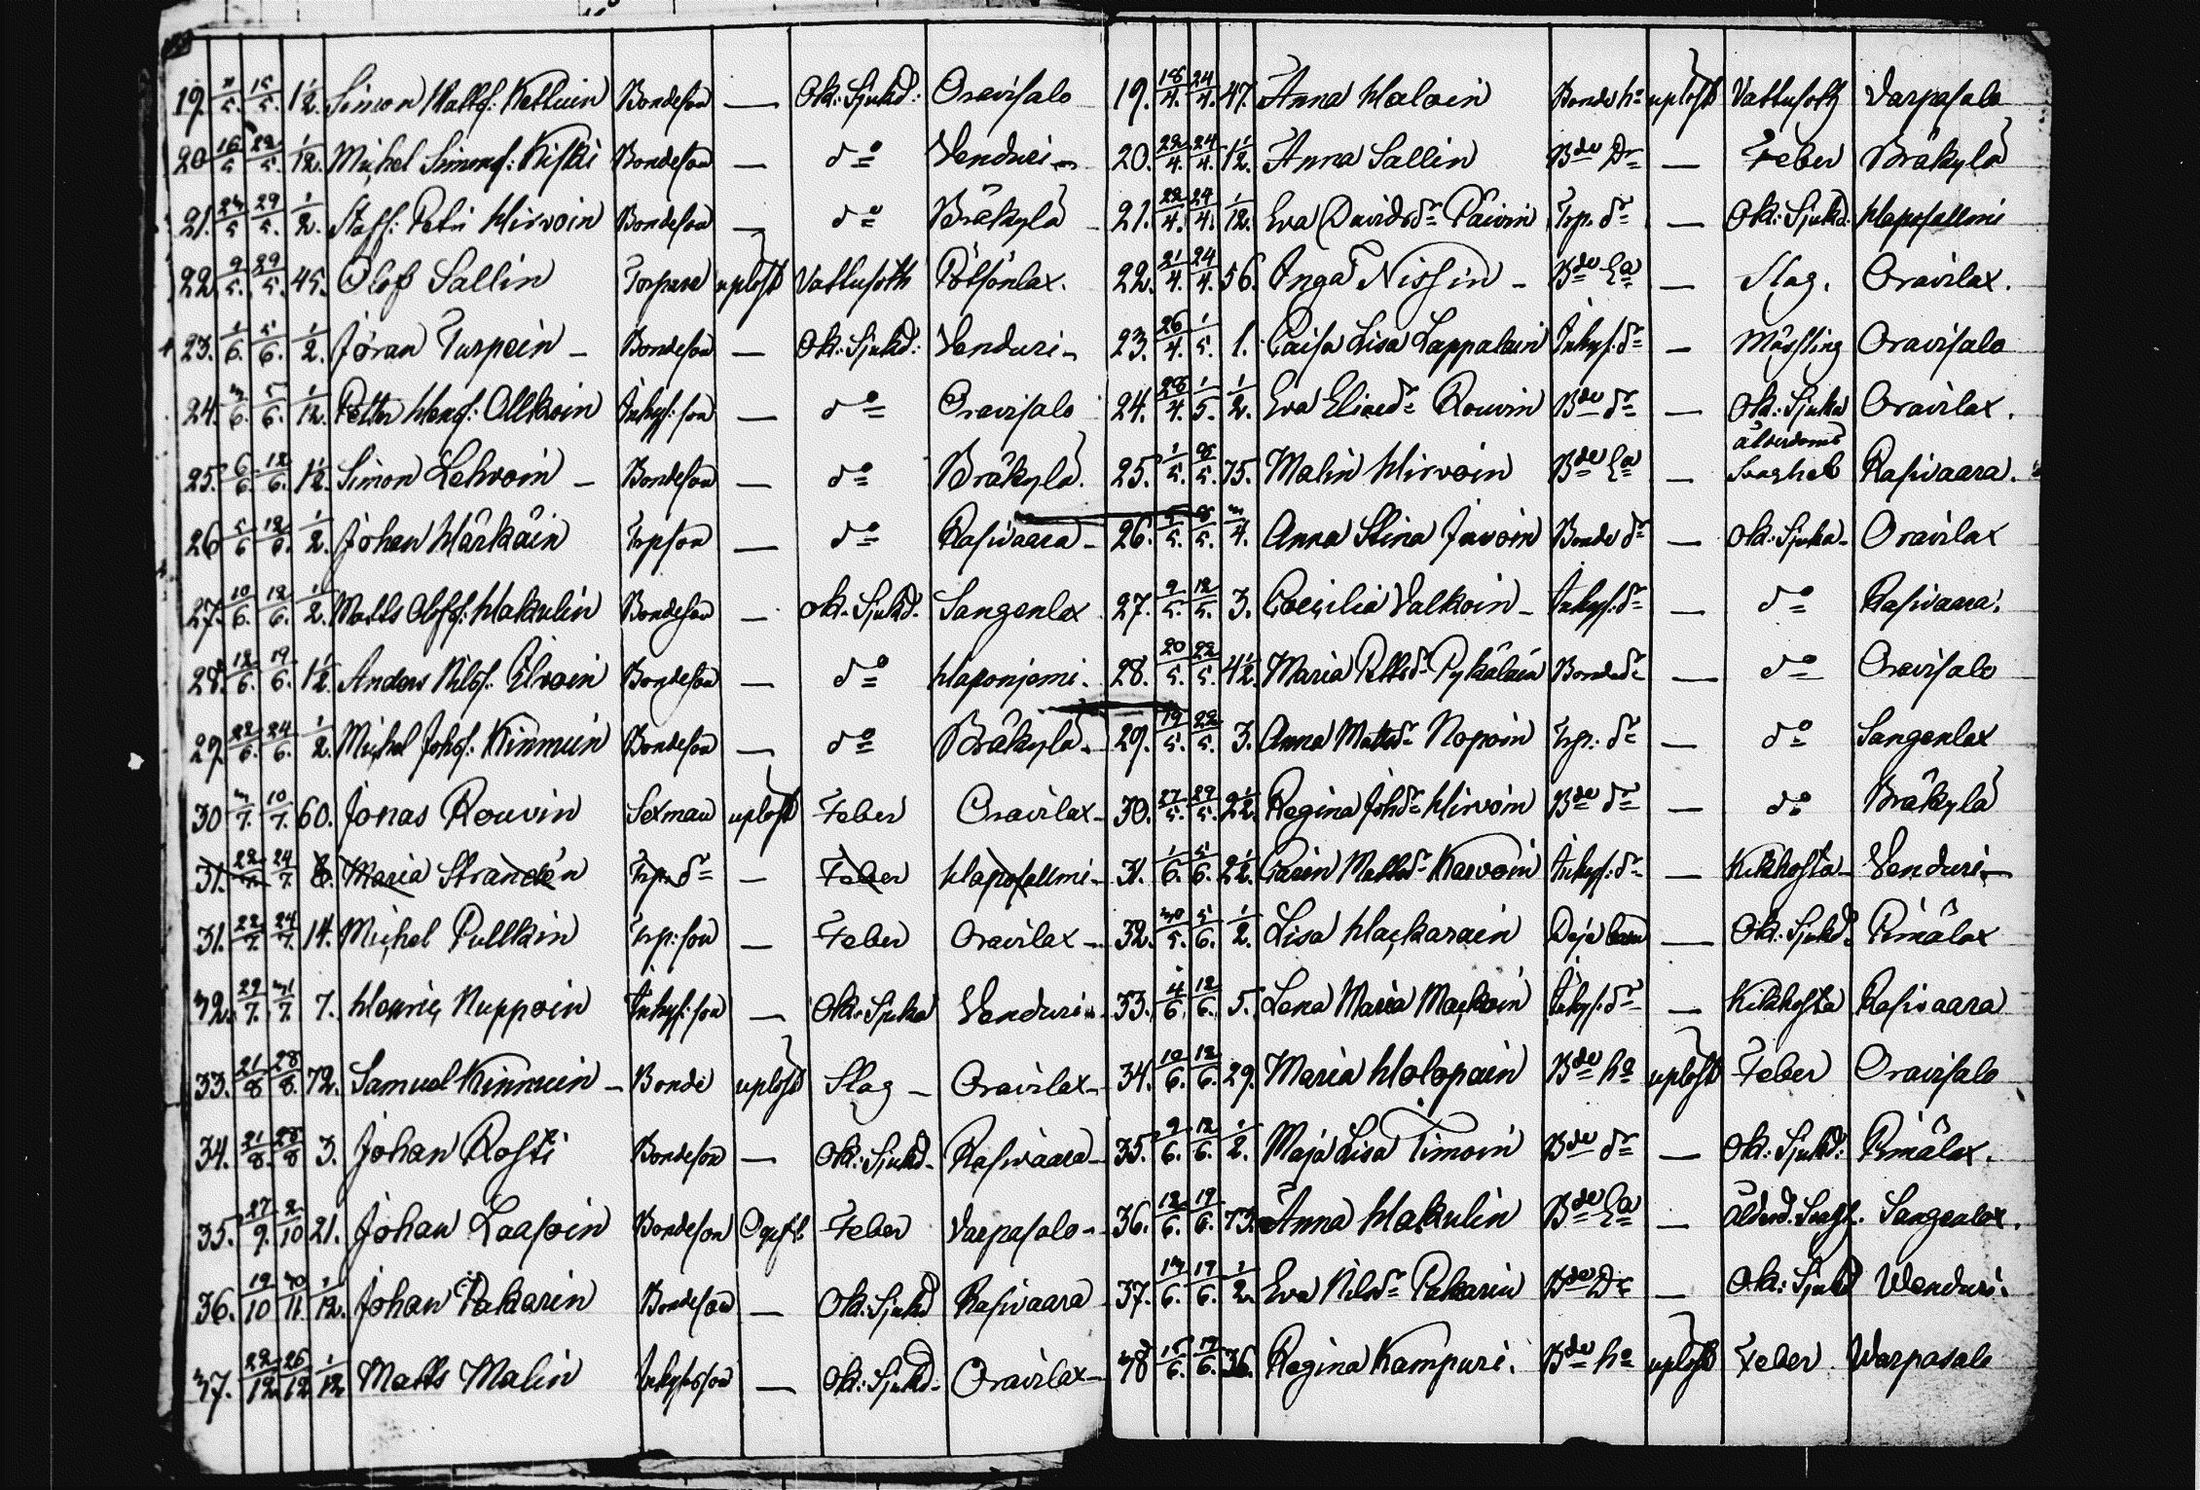 19. 7/5. 15/5. 1 1/2. Simon Mattss: Kettuin Bondeson — Ok: Sjukd: Oravisalo
20 16/5 22/5. 1/12. Michel Simonss: Kiski Bondeson — do Venduri
21. 24/5 29/5. 1/2. Staff: Petri Hirvoin Bondeson — do Bräkylä
22. 9/5. 29/5. 45. Olof Sallin Torpare uplöst Vattusoth Pötsönlax.
23. 1/6. 5/6. 1/2. Jöran Turpein — Bondeson — Ok: Sjukd: Venduri
24. 3/6. 5/6. 1/12. Petter Henss: Ollkoin Inhys: son — do Oravisalo
25. 6/6. 12/6. 1 1/2. Simon Lehvoin — Bondeson — do Bräkylä.
26 5/6 12/6. 1/2. Johan Härkäin Trpson — do Rasivaara
27. 10/6. 12/6. 1/2. Matts Olofss: Hakulin Bondeson — Ok: Sjukd. Sangenlax
28. 12/6. 19/6. 1 1/2. Anders Nilss: Eivoin Bondeson — do Haponjemi.
29. 22/6. 24/6. 1/2. Michel Johss: Kinnuin Bondeson — do Bräkylä
30 3/7. 10/7. 60. Jonas Rouvin Sexman uplöst Feber Oravilax
31. 22/7 24/7. Maria Strandén Trp. dr — Feber Haposallmi
31. 22/7. 24/7. 14. Michel Pullkin Trp: son — Feber Oravilax
32. 29/7. 31/7. 7. Henric Nuppoin Inhys: son — Ok: Sjuka Venduri
33. 21/8 28/8. 72. Samuel Kinnuin — Bonde uplöst Slag — Oravilax
34. 21/8. 28/8 3. Johan Rosti Bondeson — Ok: Sjukd Rasivaara
35. 27/9. 2/10 21. Johan Laasoin Bondeson Ogift Feber Varpasalo
36. 19/10 30/11. 1/12. Johan Pakarin Bondeson — Ok: Sjukd Rasivaara
37. 22/12 26/12 1/12 Matts Malin Inhysson — Ok: Sjukd. Oravilax
19. 18/4. 24/4. 47. Anna Haloin Bonde ha uplöst Vattusoth Varpasalo
20. 22/4. 24/4. 1 1/2. Anna Sallin Bde Dr — Feber Bräkylä
21. 22/4. 24/4. 1/12. Eva Davidsdr Päivin Trp. dr — Ok: Sjukd. Haposallmi
22. 21/4. 24/4. 56. Inga Nissin — Bde Ea — Slag. Oravilax.
23. 26/4. 1/5. 1. Caisa Lisa Lappalain Inhys. dr — Mässling Oravisalo
24. 28/4. 1/5. 1/2. Eva Eliaedr Rouvin Bde dr — Ok: Sjuka Oravilax.
25. 1/5. 8/5. 75. Malin Hirvoin Bde Ea — ålderdoms Svaghet Rasivaara.
26. 5/5. 8/5. 3/4. Anna Stina Juvoin Bonde dr — Ok: Sjuka Oravilax
27. 9/5. 12/5. 3. Cecilia Valkoin — Inhys. dr — do Rasivaara.
28. 20/5. 22/5. 4 1/2. Maria Pettsdr Pykäläin Bondedr — do Oravisalo
29. 19/5. 22/5. 3. Anna Mattsdr Nopoin Trp. dr — do Sangenlax
30. 27/5. 29/5. 2 1/2. Regina Johdr Hirvoin Bde dr — do Bräkylä
31. 1/6. 5/6. 2 1/2. Carin Mattsdr Karvoin Inhys. dr — Kikhosta Venduri
32. 30/5. 5/6. 1/2. Lisa Hackarain Deja barn — Ok: Sjukd. Pimälax
33. 4/6. 12/6. 5. Lena Maria Mackoin Inhys. dr — Kikhosta Rasivaara
34. 10/6. 12/6. 29. Maria Holopain Bde ha uplöst Feber Oravisalo
35. 9/6. 12/6. 1/2. Maja Lisa Timoin Bde dr — Ok: Sjukd: Pimälax.
36. 12/6. 19/6. 73. Anna Hakulin Bde Ea — Ålderd. Svagh. Sangenlax.
37. 13/6. 19/6. 1/2. Eva Nilsdr Pakarin Bde Dr — Ok: Sjukd Wenduri.
38 15/6. 19/6. 36. Regina Kampuri. Bde ha uplöst Feber. Warpasalo